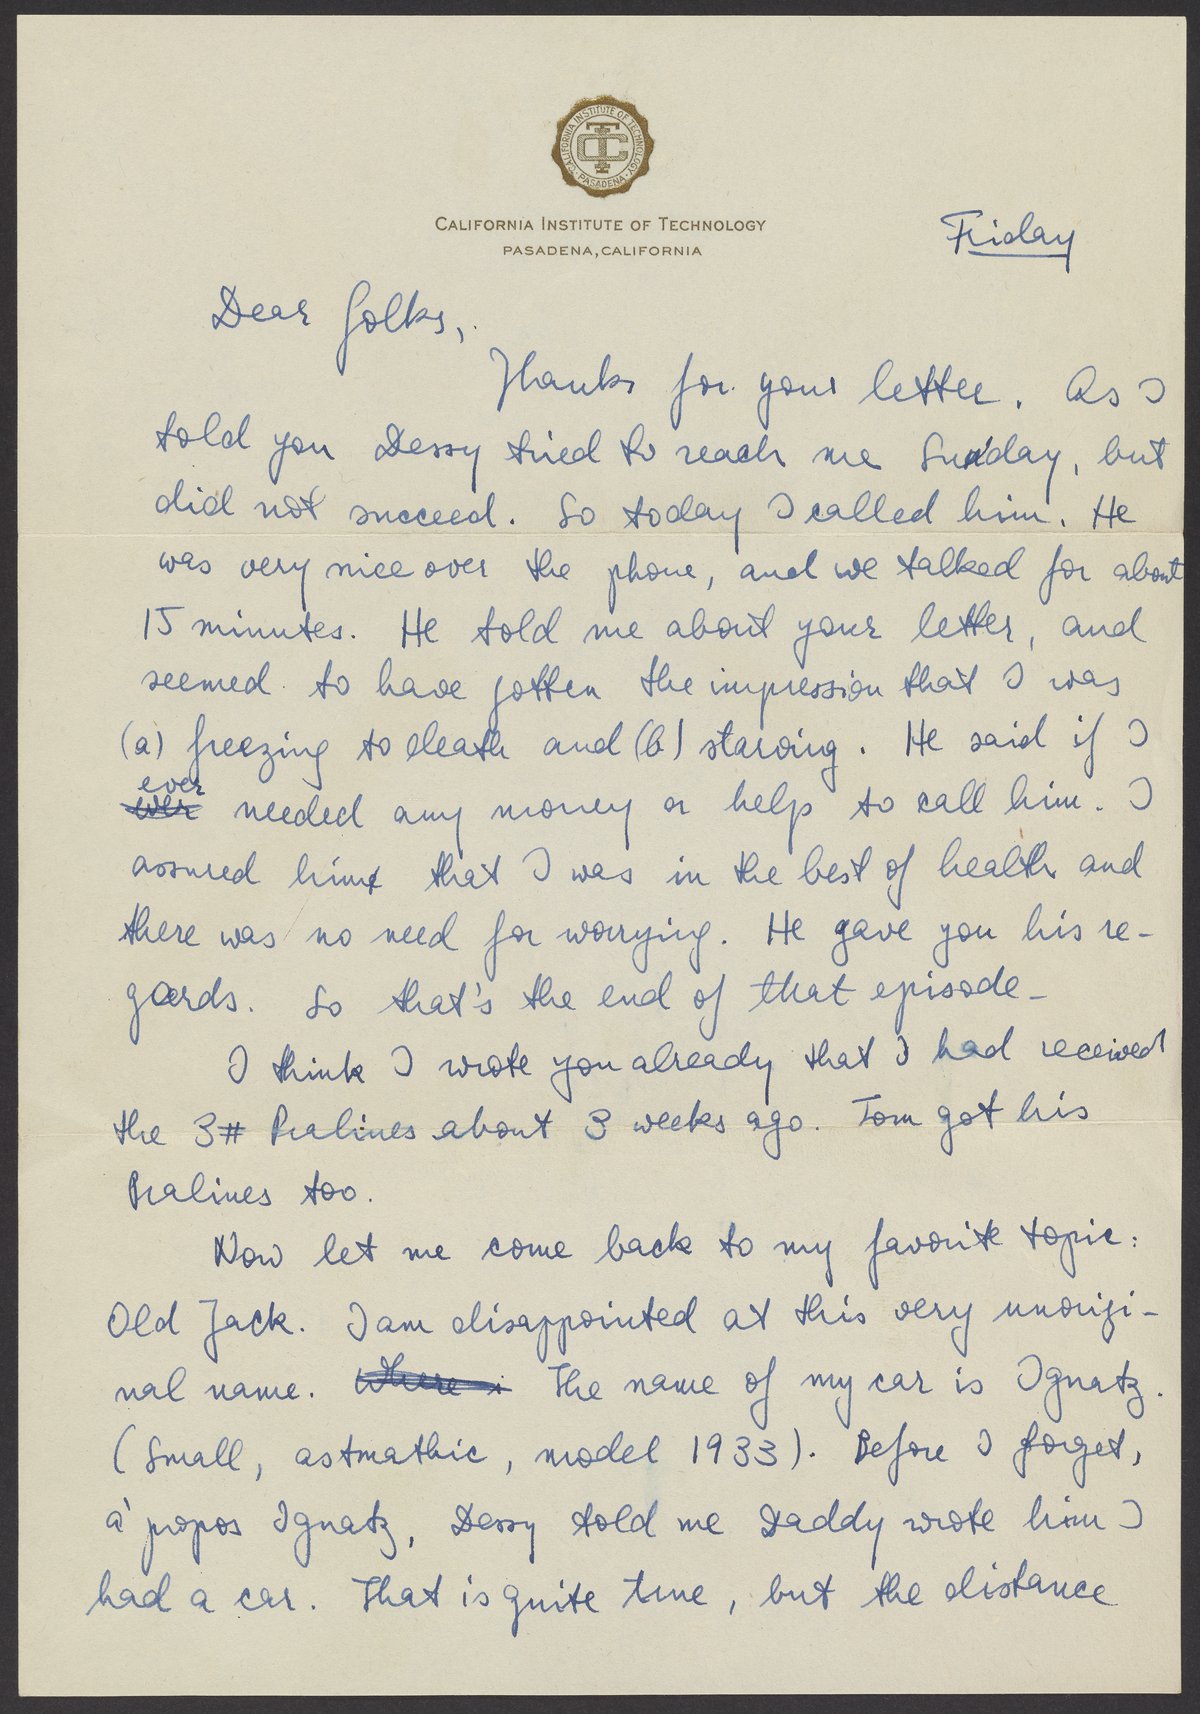 CALIFORNIA INSTITUTE OF TECHNOLOGY · PASADENA ·
CALIFORNIA INSTITUTE OF TECHNOLOGY
PASADENA, CALIFORNIA
Friday
Dear folks,
Thanks for your letter. As I
told you Dessy tried to reach me Sunday, but
did not succeed. So today I called him. He
was very nice over the phone, and we talked for about
15 minutes. He told me about your letter, and
seemed to have gotten the impression that I was
(a) freezing to death and (b) starving. He said if I
ever
needed any money or help to call him. I
assured him that I was in the best of health and
there was no need for worrying. He gave you his re-
gards. So that's the end of that episode-
I think I wrote you already that I had received
the 3# Pralines about 3 weeks ago. Tom got his
Pralines too.
Now let me come back to my favorite topic:
Old Jack. I am disappointed at this very unorigi-
nal name. Where i The name of my car is Ignatz.
(Small, astmathic, model 1933). Before I forget,
á propos Ignatz, Dessy told me Daddy wrote him I
had a car. That is quite true, but the distance